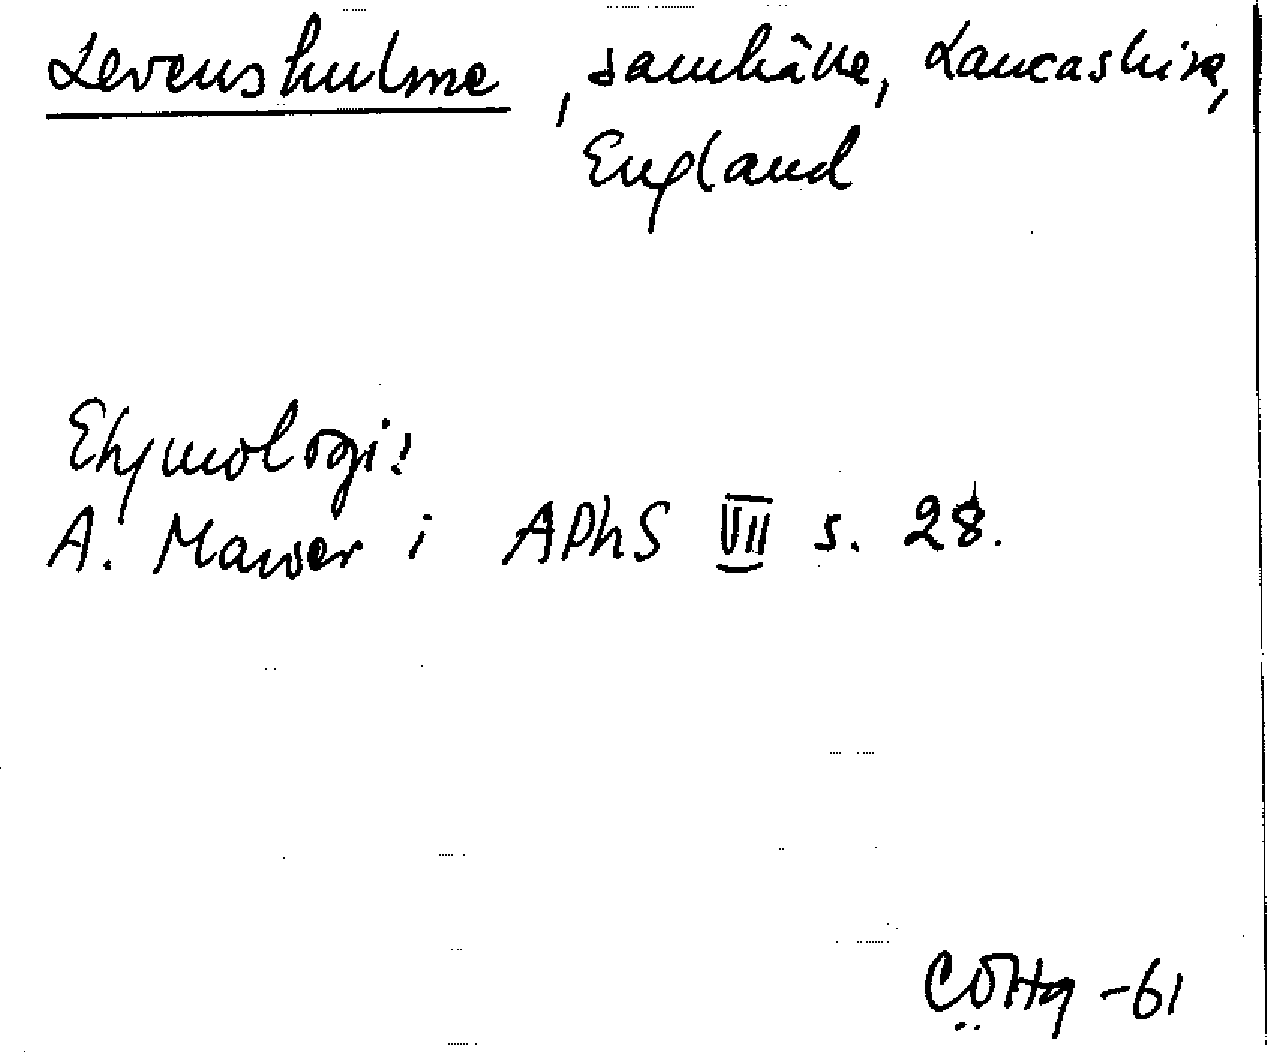 Levenshulme, samhälle, Lancashire,
England
Etymologi:
A. Mawer i APhS VII s. 28.
-61